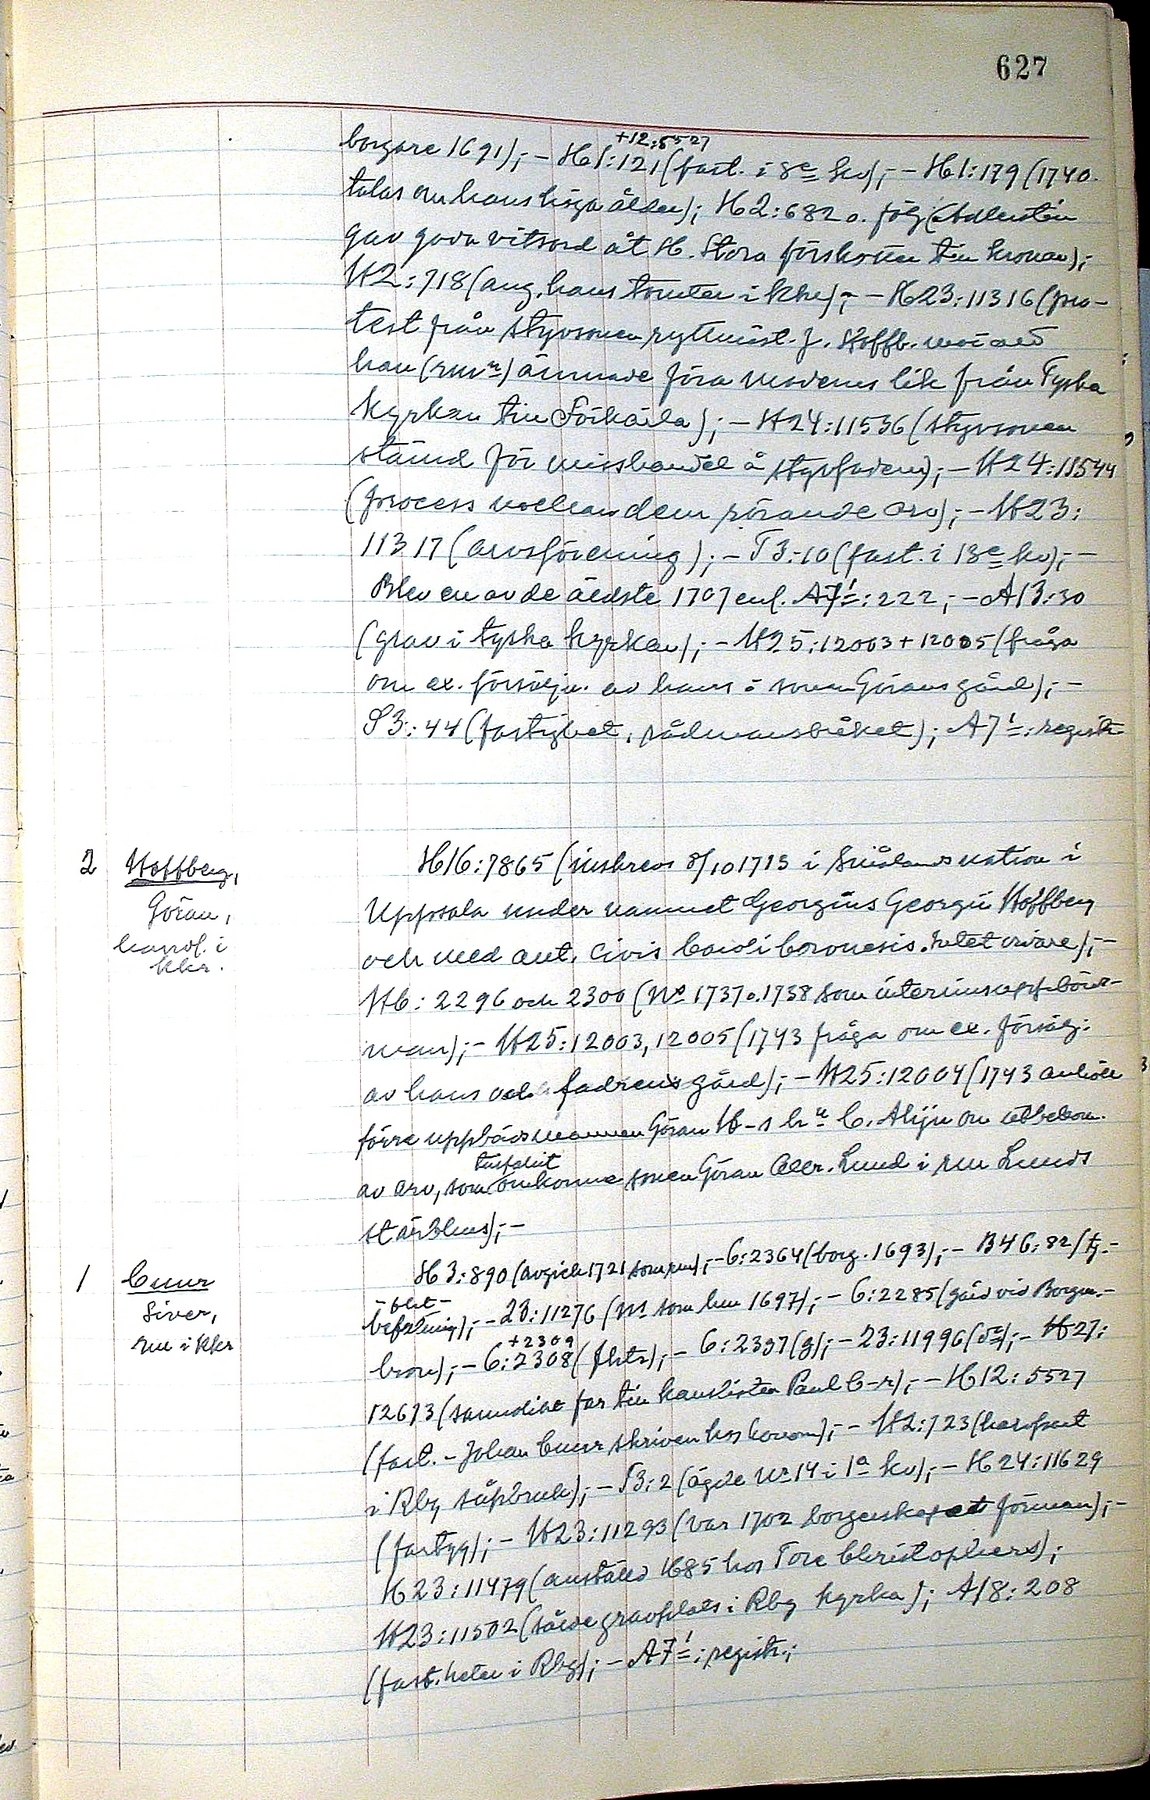 627
+12:5527
borgare 1691); – H1:121 (fast. i 8e kv); – H1:179 (1740
talas om hans höga ålder); H2:682 o. följ (Adlersten
gav goda vitsord åt H. Stora förskotten till kronan);
H2:718 (ang. hans tomter i Kkr); – H23:11316 (pro-
test från styvsonen ryttmäst. J. Hoffb. mot att
han (rmn) ämnade föra moderns lik från Tyska
kyrkan till Förkärla); – H24:11536 (styvsonen
stämd för misshandel å styvfadern); – H24:11544
(process mellan dem rörande arv); – H23:
11317 (arvsförening); – T3:10 (fast. i 13e kv); –
Blev en av de äldste 1707 enl. A7¹:222; – A13:30
(grav i tyska kyrkan); – H25:12003 + 12005 (fråga
om ex. försäljn. av hans o sonen Görans gård); –
S3:44 (fastighet, rådmansbåket); A7¹: registr
2 Hoffberg,
Göran,
handl. i
Kkr.
H16:7865 (inskrevs 8/10 1713 i Smålands nation i
Uppsala under namnet Georgius Georgii Hoffberg
och med ant. civis Caroli Coronensis. Intet vidare); –
H6:2296 och 2300 (No 1737 o. 1738 som interimsuppbörds-
man); – H25:12003, 12005 (1743 fråga om ex. försälj:
av hans och fadrens gård); – H25:12004 (1743 anhöll
förre uppbördsmannen Göran H–s hu C. Alijn om utbekom.
av arv, som omkomne sonen Göran Alexr. Lund i rm Lunds
stärbhus); –
1 Cuur
Siver,
rm i Kkr
H3:890 (avgick 1721 som rm); – 6:2364 (borg. 1693); – B46:82 (tj.-
befalning); – 23:11276 (M som hm 1697); – 6:2285 (gård vid Borgm.-
bron); – 6:2308 +2309 (fhtr); – 6:2397 (g); – 23:11996 (do); – H27:
12673 (sannolikt far till kanslisten Paul C–r); – H12:5527
(fast. – Johan Cuur skriven hos honom); – H2:723 (harufaret
i Rby såpbruk); – T3:2 (ägde No 14 i 1a kv); – H24:11629
(fartyg); – H23:11293 (var 1702 borgerskapet förman); –
H23:11479 (anställd 1685 hos Tore Christophers);
H23:11502 (sålde gravplats i Rby kyrka); A18:208
(fast.heter i Rby); – A7¹: registr.;